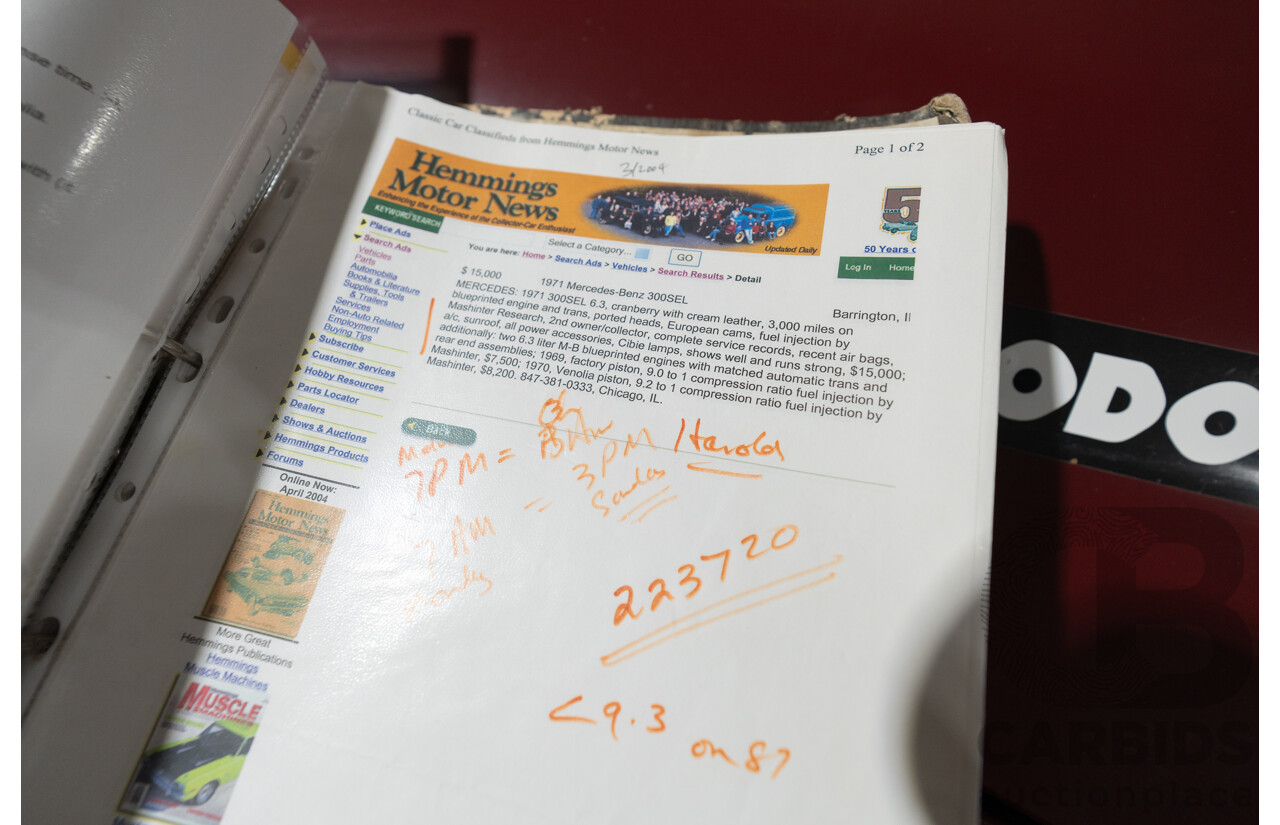 se time.
with
Classic Car Classifieds from Hemmings Motor News
Page 1 of 2
3/2004
Hemmings
Motor News
Enhancing the Experience of the Collector-Car Enthusiast
Updated Daily
KEYWORD SEARCH
Place Ads
Search Ads
Vehicles
Parts
Automobilia
Books & Literature
Supplies, Tools
& Trailers
Services
Non-Auto Related
Employment
Buying Tips
Subscribe
Customer Services
Hobby Resources
Parts Locator
Dealers
Shows & Auctions
Hemmings Products
Forums
Online Now:
April 2004
Hemmings
Motor News
More Great
Hemmings Publications
Hemmings
Muscle Machines
MUSCLE
MACHINES
Select a Category...
GO
You are here: Home > Search Ads > Vehicles > Search Results > Detail
50 Years
Log In Home
$ 15,000 1971 Mercedes-Benz 300SEL
Barrington, Il
MERCEDES: 1971 300SEL 6.3, cranberry with cream leather, 3,000 miles on
blueprinted engine and trans, ported heads, European cams, fuel injection by
Mashinter Research, 2nd owner/collector, complete service records, recent air bags,
a/c, sunroof, all power accessories, Cibie lamps, shows well and runs strong, $15,000;
additionally: two 6.3 liter M-B blueprinted engines with matched automatic trans and
rear end assemblies; 1969, factory piston, 9.0 to 1 compression ratio fuel injection by
Mashinter, $7,500; 1970, Venolia piston, 9.2 to 1 compression ratio fuel injection by
Mashinter, $8,200. 847-381-0333, Chicago, IL.
Back
7PM = Harold
7 AM = 3PM
223720
<9.3
on 87
ODO
CARBIDS
auctionplace